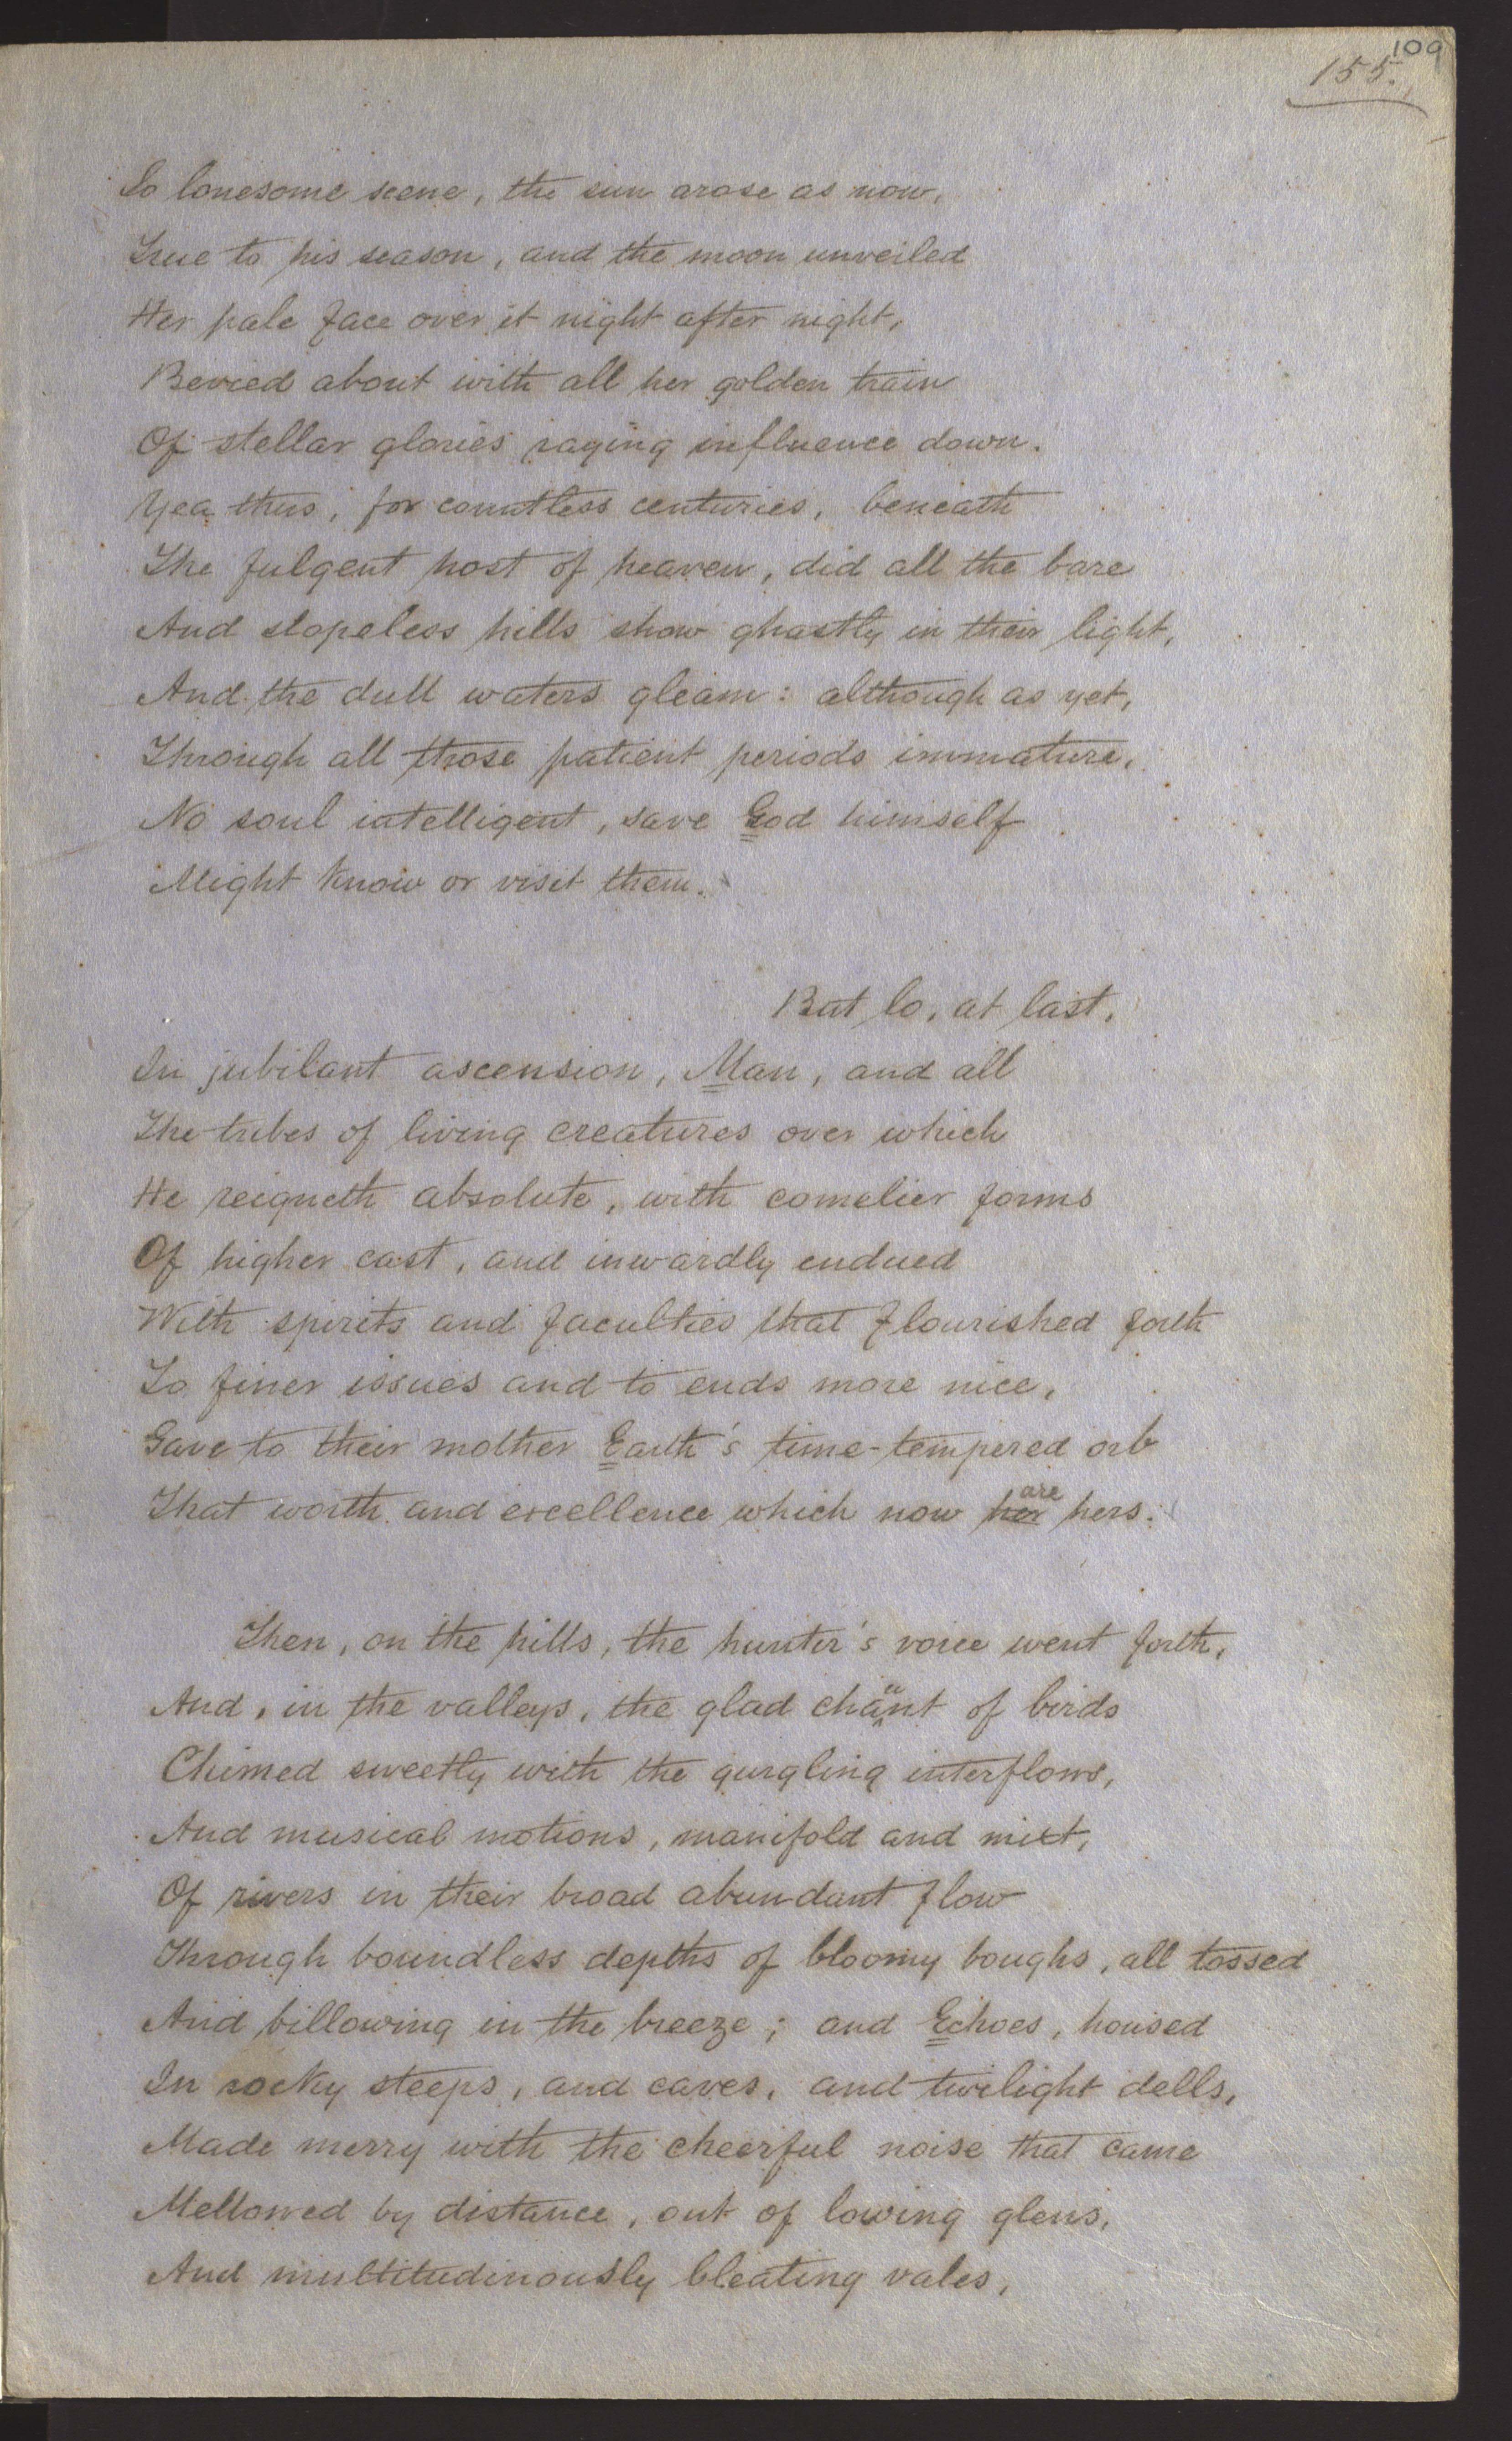 109
155.
So lonesome scene, the sun arose as now,
True to his season, and the moon unveiled
Her pale face over it night after night,
Bevied about with all her golden train
Of stellar glories raying influence down.
Yea thus, for countless centuries, beneath
The fulgent host of heaven, did all the bare
And slopeless hills show ghastly in their light,
And the dull waters gleam: although as yet,
Through all those patient periods immature,
No soul intelligent, save God himself
Might know or visit them.
But lo, at last,
In jubilant ascension, Man, and all
The tribes of living creatures over which
He reigneth absolute, with comelier forms
Of higher cast, and inwardly endued
With spirits and faculties that flourished forth
To finer issues and to ends more nice,
Gave to their mother Earth's time-tempered orb
That worth and excellence which now her are hers.
Then, on the hills, the hunter's voice went forth,
And, in the valleys, the glad chaunt of birds
Chimed sweetly with the gurgling interflows,
And musical motions, manifold and mixt,
Of rivers in their broad abundant flow
Through boundless depths of bloomy boughs, all tossed
And billowing in the breeze; and Echoes, housed
In rocky steeps, and caves, and twilight dells,
Made merry with the cheerful noise that came
Mellowed by distance, out of lowing glens,
And multitudinously bleating vales,